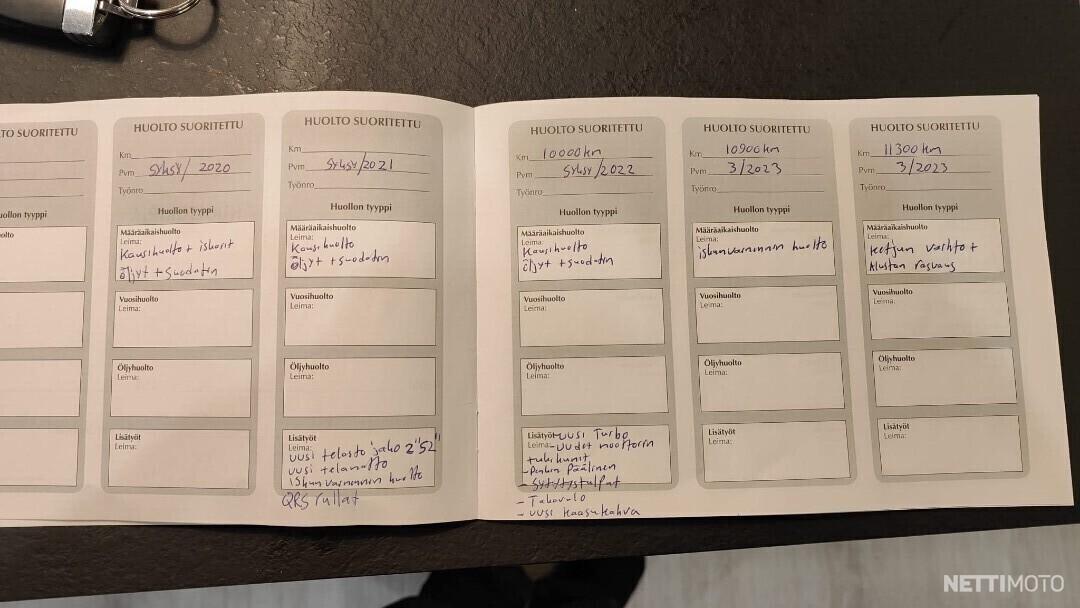 TO SUORITETTU
ollon tyyppi
olto
HUOLTO SUORITETTU
Km
Pvm syksy/ 2020
Työnro
Huollon tyyppi
Määräaikaishuolto
Leima:
Kausihuolto + iskarit
öljyt + suodatin
Vuosihuolto
Leima:
Öljyhuolto
Leima:
Lisätyöt
HUOLTO SUORITETTU
Km
Pvm syksy/2021
Työnro
Huollon tyyppi
Määräaikaishuolto
Leima:
Kausihuolto
öljyt + suodatin
Vuosihuolto
Leima:
Öljyhuolto
Leima:
Lisätyöt
Leima:
uusi telasto jako 2"52"
uusi telamatto
iskunvaimennin huolto
QRS rullat
HUOLTO SUORITETTU
Km 10000km
Pvm syksy/2022
Työnro
Huollon tyyppi
Määräaikaishuolto
Leima:
Kausihuolto
öljyt + suodatin
Vuosihuolto
Leima:
Öljyhuolto
Leima:
Lisätyöt - uusi Turbo
Leima: - uudet moottorin
tukikumit
- Penkin Päälinen
- Sytytystulpat
- Takavalo
- uusi kaasukahva
HUOLTO SUORITETTU
Km 10900km
Pvm 3/2023
Työnro
Huollon tyyppi
Määräaikaishuolto
Leima:
iskunvaimennin huolto
Vuosihuolto
Leima:
Öljyhuolto
Leima:
Lisätyöt
Leima:
HUOLTO SUORITETTU
Km 11300km
Pvm 3/2023
Työnro
Huollon tyyppi
Määräaikaishuolto
Leima:
ketjun vaihto +
Alustan rasvaus
Vuosihuolto
Leima:
Öljyhuolto
Leima:
Lisätyöt
Leima:
NETTIMOTO